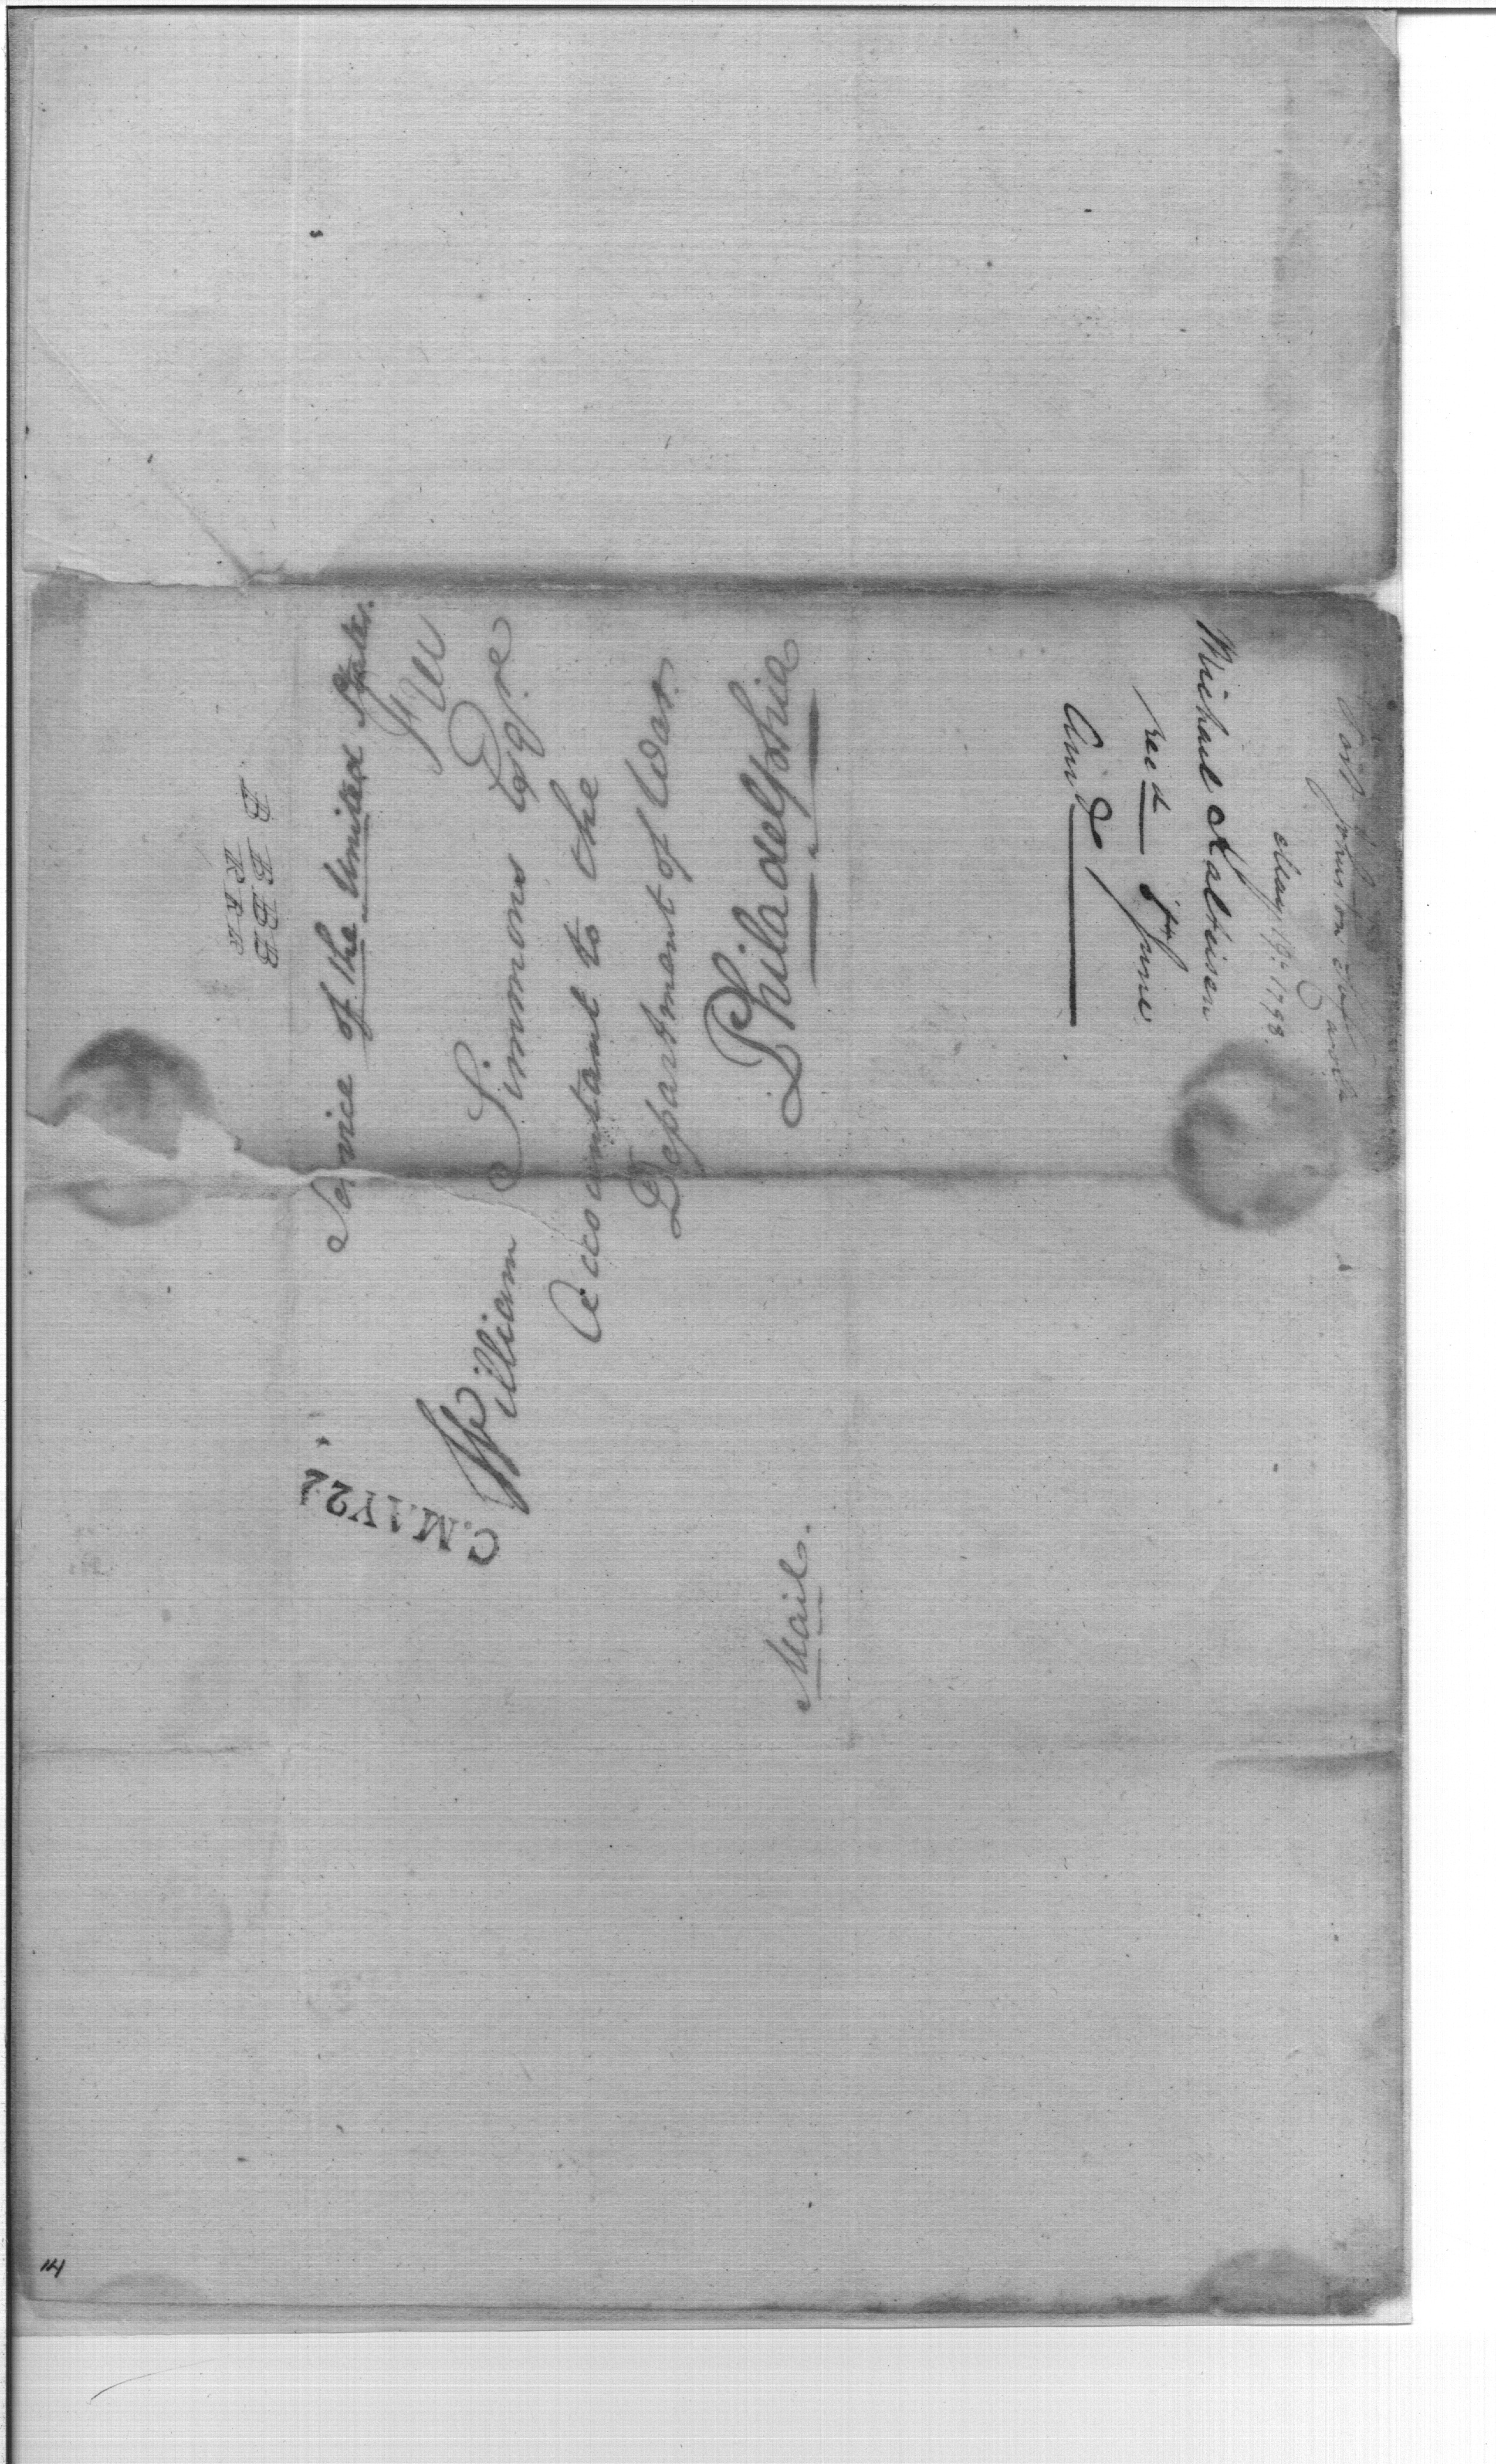 Service of the United States.
Free
William Simmons Esqre
Accountant to the
Department of War.
Philadelphia
Mail.
C. MAY 22
B B B B
Fort Johnston
May 19th 1798.
Michael Kalteisen
recd June
14